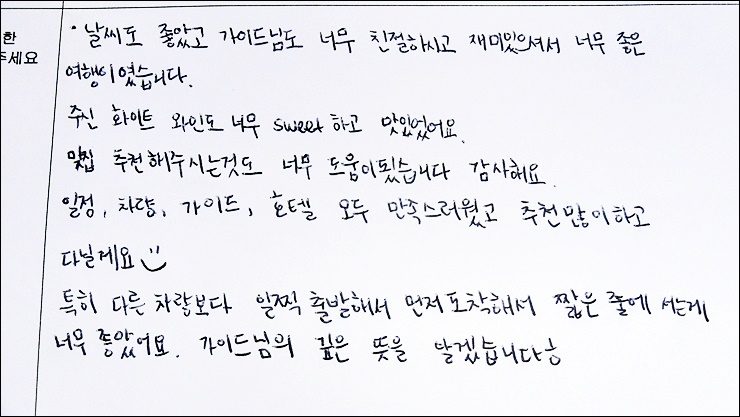 한
주세요
· 날씨도 좋았고 가이드님도 너무 친절하시고 재미있으셔서 너무 좋은
여행이였습니다.
주신 화이트 와인도 너무 sweet하고 맛있었어요.
맛집 추천해주시는것도 너무 도움이됬습니다 감사해요.
일정, 차량, 가이드, 호텔 모두 만족스러웠고 추천많이하고
다닐게요
특히 다른 차량보다 일찍 출발해서 먼저도착해서 짧은 줄에 서는게
너무 좋았어요. 가이드님의 깊은 뜻을 알겠습니다